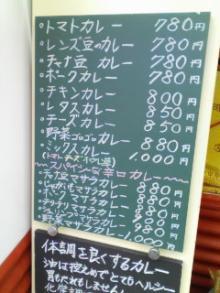 ・トマトカレー 780円
・レンズ豆のカレー 780円
・チャナ豆カレー 780円
・ポークカレー 780円
・チキンカレー 800円
・レタスカレー 850円
・チーズカレー 850円
・野菜ゴロゴロカレー 880円
・ミックスカレー 1,000円
〜スパイシーな辛口カレー〜
・チャナ豆マサラカレー 880円
・じゃがいもマサラカレー
・ポークマサラカレー
・チキンマサラカレー
・野菜マサラカレー 980円
体調を良くするカレー
油は控えめでとてもヘルシー
胃もたれもしません!
化学調